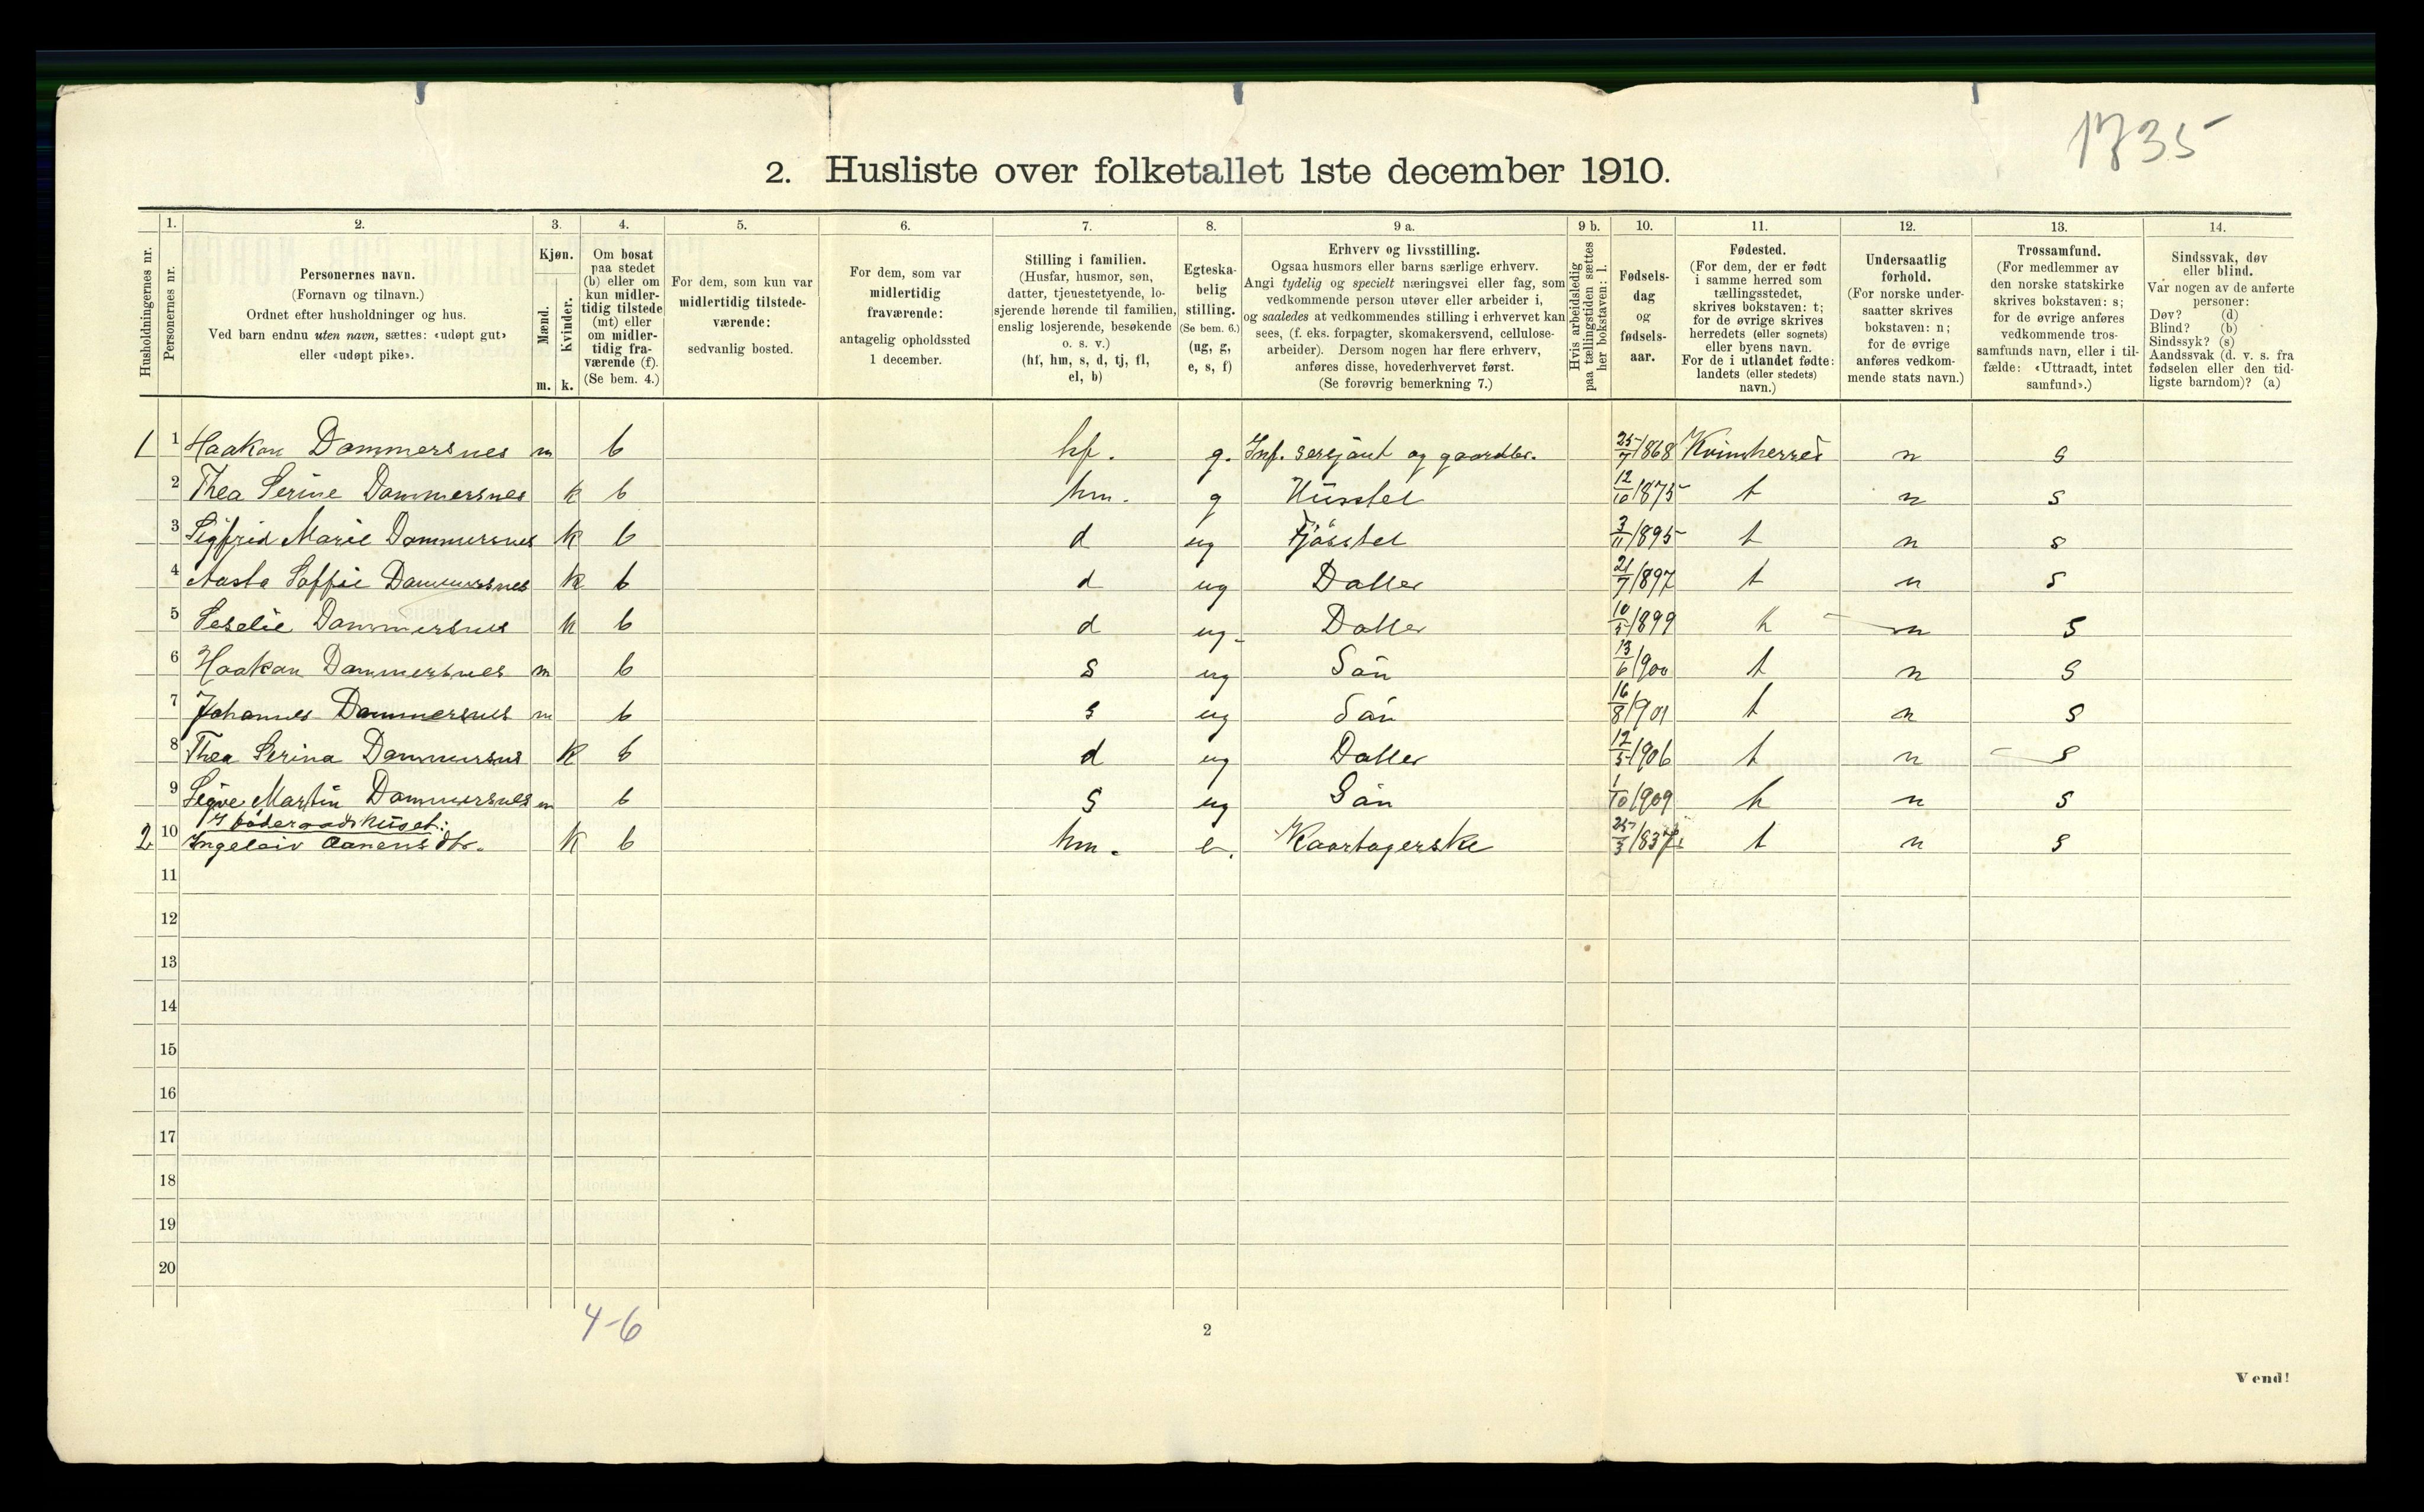 1735
2. Husliste over folketallet 1ste december 1910.
Husholdningernes nr.
1. Personernes nr.
2. Personernes navn. (Fornavn og tilnavn.) Ordnet efter husholdninger og hus. Ved barn endnu uten navn, sættes: «udøpt gut» eller «udøpt pike».
3. Kjøn. Mænd. m. Kvinder. k.
4. Om bosat paa stedet (b) eller om kun midlertidig tilstede (mt) eller om midlertidig fraværende (f). (Se bem. 4.)
5. For dem, som kun var midlertidig tilstedeværende: sedvanlig bosted.
6. For dem, som var midlertidig fraværende: antagelig opholdssted 1 december.
7. Stilling i familien. (Husfar, husmor, søn, datter, tjenestetyende, losjerende hørende til familien, enslig losjerende, besøkende o. s. v.) (hf, hm, s, d, tj, fl, el, b)
8. Egteskabelig stilling. (Se bem. 6.) (ug, g, e, s, f)
9 a. Erhverv og livsstilling. Ogsaa husmors eller barns særlige erhverv. Angi tydelig og specielt næringsvei eller fag, som vedkommende person utøver eller arbeider i, og saaledes at vedkommendes stilling i erhvervet kan sees, (f. eks. forpagter, skomakersvend, cellulosearbeider). Dersom nogen har flere erhverv, anføres disse, hovederhvervet først. (Se forøvrig bemerkning 7.)
9 b. Hvis arbeidsledig paa tællingstiden sættes her bokstaven: l.
10. Fødselsdag og fødselsaar.
11. Fødested. (For dem, der er født i samme herred som tællingsstedet, skrives bokstaven: t; for de øvrige skrives herredets (eller sognets) eller byens navn. For de i utlandet fødte: landets (eller stedets) navn.)
12. Undersaatlig forhold. (For norske undersaatter skrives bokstaven: n; for de øvrige anføres vedkommende stats navn.)
13. Trossamfund. (For medlemmer av den norske statskirke skrives bokstaven: s; for de øvrige anføres vedkommende trossamfunds navn, eller i tilfælde: «Uttraadt, intet samfund».)
14. Sindssvak, døv eller blind. Var nogen av de anførte personer: Døv? (d) Blind? (b) Sindssyk? (s) Aandssvak (d. v. s. fra fødselen eller den tidligste barndom)? (a)
1 1 Haakon Dommersnes m b hf. g. Inf. sersjant og gaardbr. 25/7 1868 Kvinsherred n s
2 Thea Serine Dommersnes k b hm. g Husstel 12/10 1875 t n s
3 Sigfrid Marie Dommersnes k b d ug Fjösstel 3/11 1895 t n s
4 Aasta Soffie Dommersnes k b d ug Datter 21/7 1897 t n s
5 Seselie Dommersnes k b d ug. Datter 10/5 1899 t n s
6 Haakon Dommersnes m b s ug Sön 13/6 1900 t n s
7 Johannes Dommersnes m b s ug Sön 16/8 1901 t n s
8 Thea Serina Dommersnes k b d ug Datter 12/5 1906 t n s
9 Sigve Martin Dommersnes m b s ug Sön 1/10 1909 t n s
I föderaadshuset:
2 10 Ingeleiv Aanensdtr. k b hm. e. Kaartagerske 25/3 1837 t n s
11
12
13
14
15
16
17
18
19
20
4-6
2
Vend!